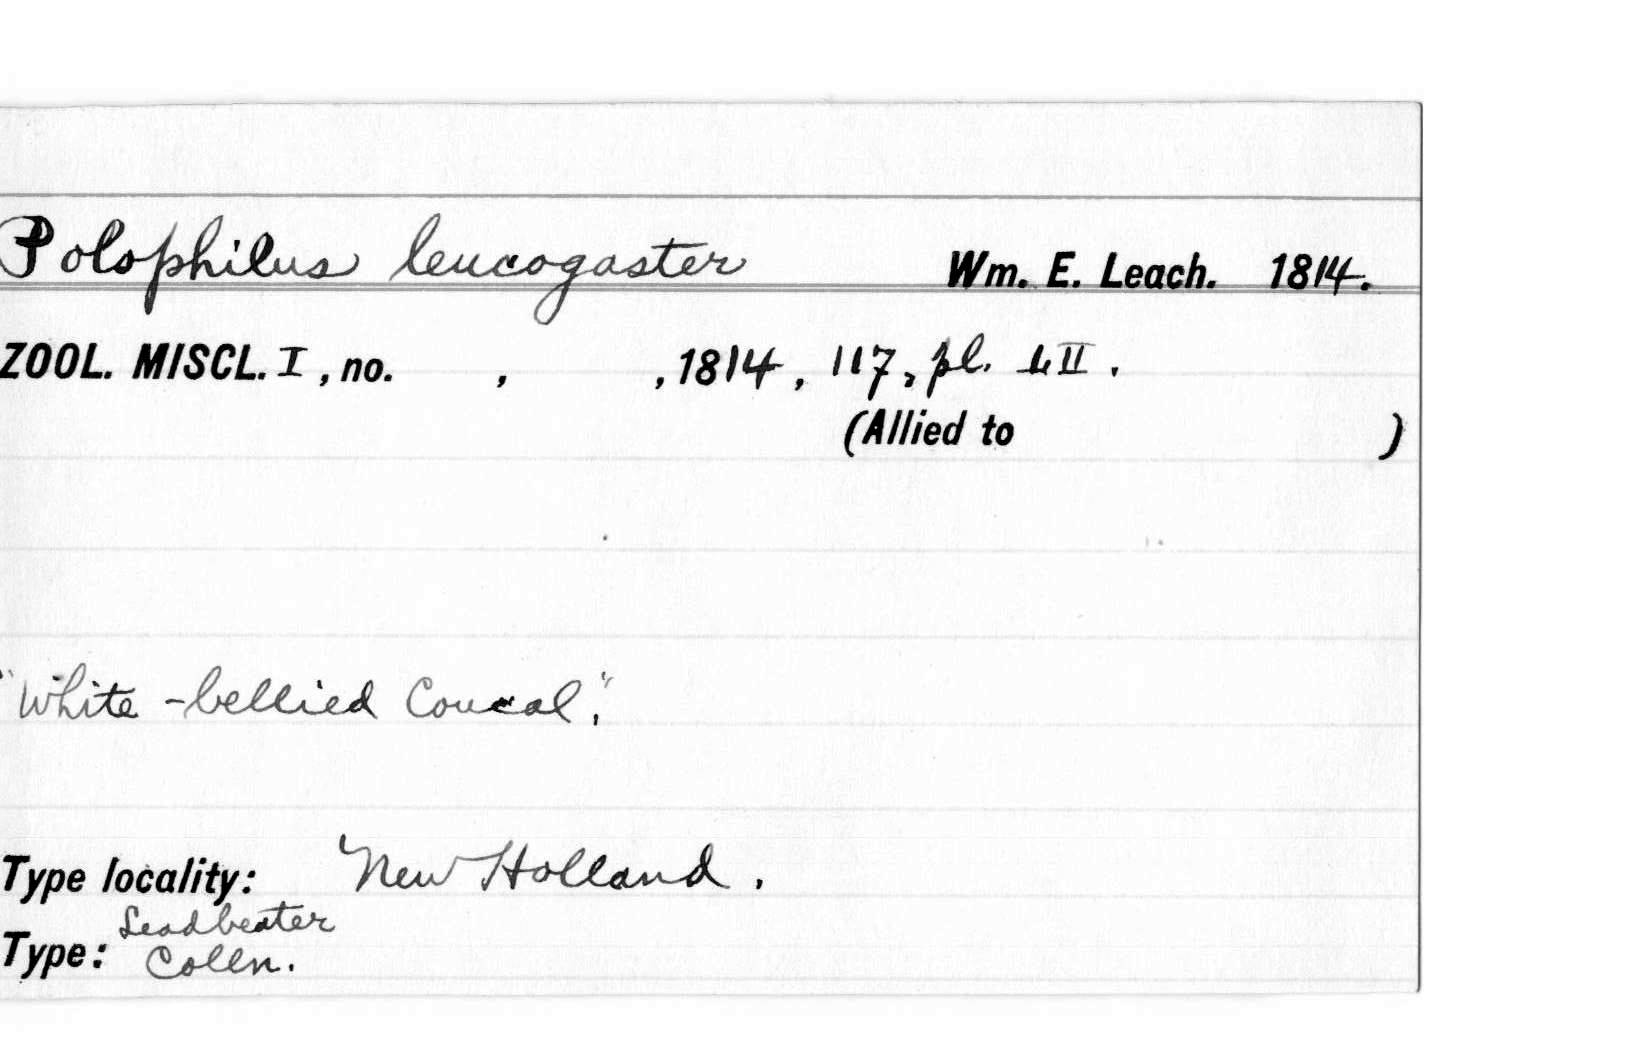 Polophilus leucogaster Wm. E. Leach. 1814.
ZOOL. MISCL. I, no. , , 1814, 117, pl. LII.
(Allied to )
"White-bellied Coucal,"
Type locality: New Holland.
Leadbeater
Type: Colln.